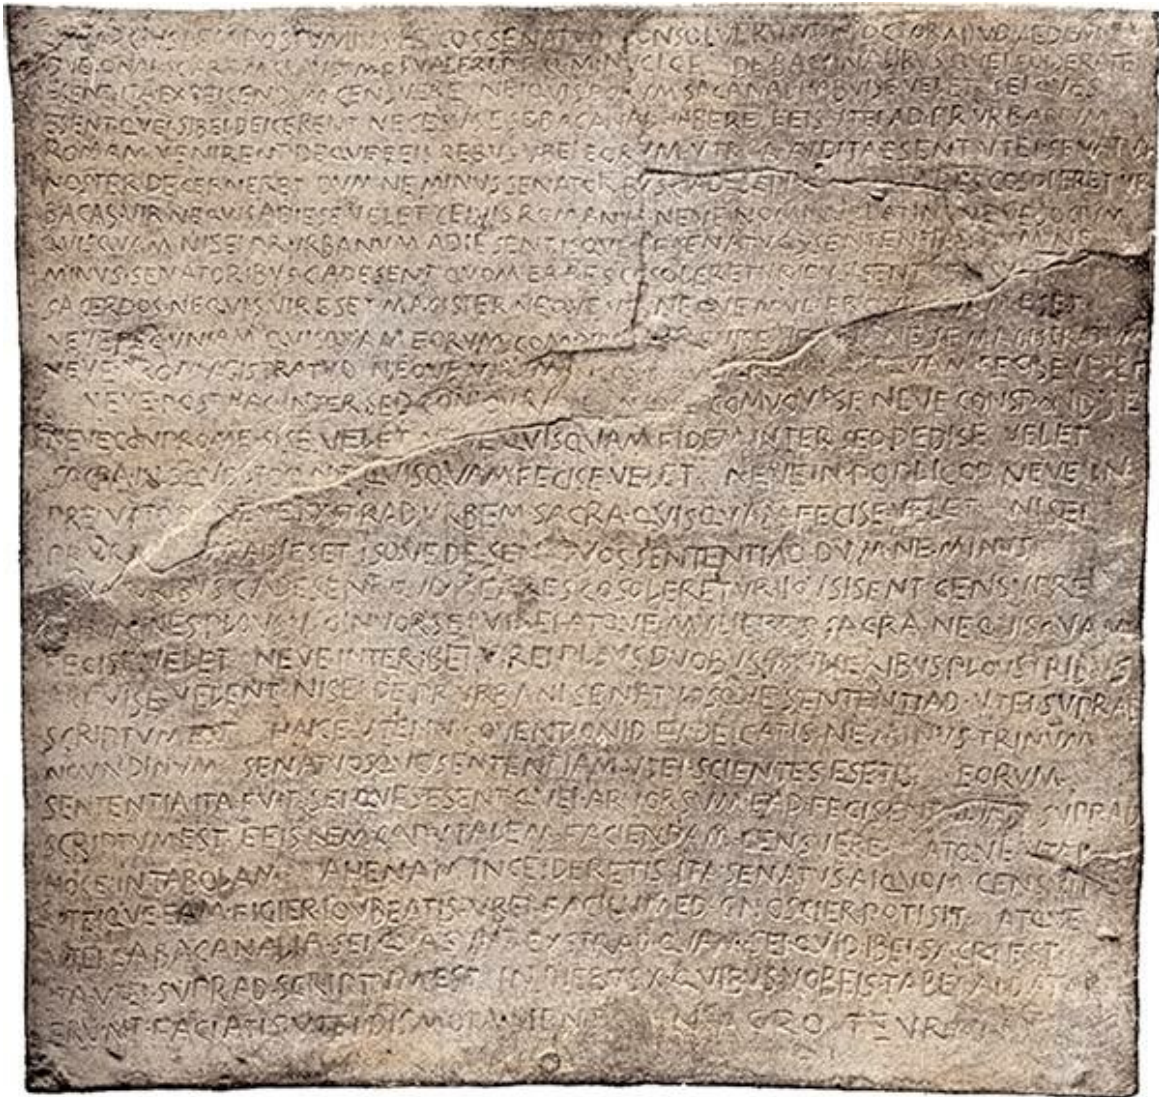 POSTVMIVS L COS SENATVM CONSOLVERVNT N OCTOB APVD AEDEM
DVELONAI SC ARF M CLAVDI M F L VALERI P F Q MINVCI C F DE BACANALIBVS QVEI FOIDERATEI
ESENT ITA EXDEICENDVM CENSVERE NEIQVIS EORVM BACANAL HABVISE VELET SEI QVES
ESENT QVEI SIBEI DEICERENT NECESVS ESE BACANAL HABERE EEIS VTEI AD PR VRBANVM
ROMAM VENIRENT DEQVE EEIS REBVS VBEI EORVM VTR A AVDITA ESENT VTEI SENATVS
NOSTER DECERNERET DVM NE MINVS SENATORBVS C ADESENT RES COSOLERETVR
BACAS VIR NEQVIS ADIESE VELET CEIVIS ROMANVS NEVE NOMINVS LATINI NEVE SOCIVM
QVISQVAM NISEI PR VRBANVM ADIESENT ISQVE DE SENATVOS SENTENTIAD DVM NE
MINVS SENATORIBVS C ADESENT QVOM EA RES COSOLERETVR IOVSISENT
SACERDOS NEQVIS VIR ESET MAGISTER NEQVE VIR NEQVE MVLIER QVISQVAM ESET
NEVE PECVNIAM QVISQVAM EORVM COMOINEM HABVISE VELET NEVE MAGISTRATVM
NEVE PRO MAGISTRATVD NEQVE VIRVM QVIQVAM FECISE VELET
NEVE POST HAC INTER SED CONIOVRASE NEVE COMVOVISE NEVE CONSPONDISE
NEVE CONPROMESISE VELET NEVE QVISQVAM FIDEM INTER SED DEDISE VELET
SACRA IN OQVOLTOD NE QVISQVAM FECISE VELET NEVE IN POPLICOD NEVE IN
PREIVATOD NEVE EXSTRAD VRBEM SACRA QVISQVAM FECISE VELET NISEI
PR VRBANVM ADIESET ISQVE DE SENATVOS SENTENTIAD DVM NE MINVS
SENATORIBVS C ADESENT QVOM EA RES COSOLERETVR IOVSISENT CENSVERE
HOMINES PLOVS V OINVORSEI VIREI ATQVE MVLIERES SACRA NE QVISQVAM
FECISE VELET NEVE INTER IBEI VIREI PLOVS DVOBVS MVLIERIBVS PLOVS TRIBVS
ARFVISE VELENT NISEI DE PR VRBANI SENATVOSQVE SENTENTIAD VTEI SVPRAD
SCRIPTVM EST HAICE VTEI IN COVENTIONID EXDEICATIS NE MINVS TRINVM
NOVNDINVM SENATVOSQVE SENTENTIAM VTEI SCIENTES ESETIS EORVM
SENTENTIA ITA FVIT SEI QVES ESENT QVEI ARVORSVM EAD FECISENT QVAM SVPRAD
SCRIPTVM EST EEIS REM CAPVTALEM FACIENDAM CENSVERE ATQVE VTEI
HOCE IN TABOLAM AHENAM INCEIDERETIS ITA SENATVS AIQVOM CENSVIT
VTEIQVE EAM FIGIER IOVBEATIS VBEI FACILVMED GNOSCIER POTISIT ATQVE
VTEI EA BACANALIA SEI QVA SVNT EXSTRAD QVAM SEI QVID IBEI SACRI EST
ITA VTEI SVPRAD SCRIPTVM EST IN DIEBVS X QVIBVS VOBEIS TABELAI DATAI
ERVNT FACIATIS VTEI DISMOTA SIENT IN AGRO TEVRANO